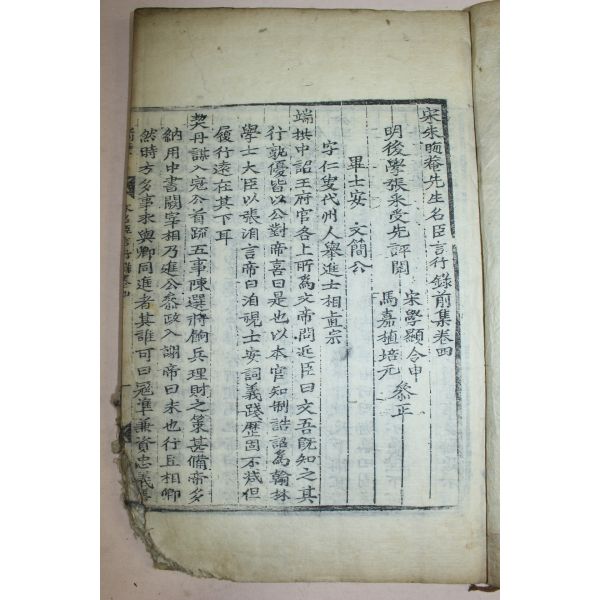 宋朱晦菴先生名臣言行錄前集卷四
明後學張采受先評閱
宋學顯令申
馬嘉植培元
參正
畢士安 文簡公
字仁叟代州人舉進士相真宗
端拱中詔王府官各上所爲文帝問近臣曰文吾旣知之其
行孰優皆以公對帝喜曰是也以本官知制誥詔爲翰林
學士大臣以張洎言帝曰洎視士安詞義踐歷固不減但
履行遠在其下耳
契丹謀入寇公首疏五事陳選將餉兵理財之策甚備帝多
納用中書闕宰相乃進公參政入謝帝曰未也行且相卿
然時方多事求與卿同進者其誰可曰寇準兼資忠義善
名臣言行錄